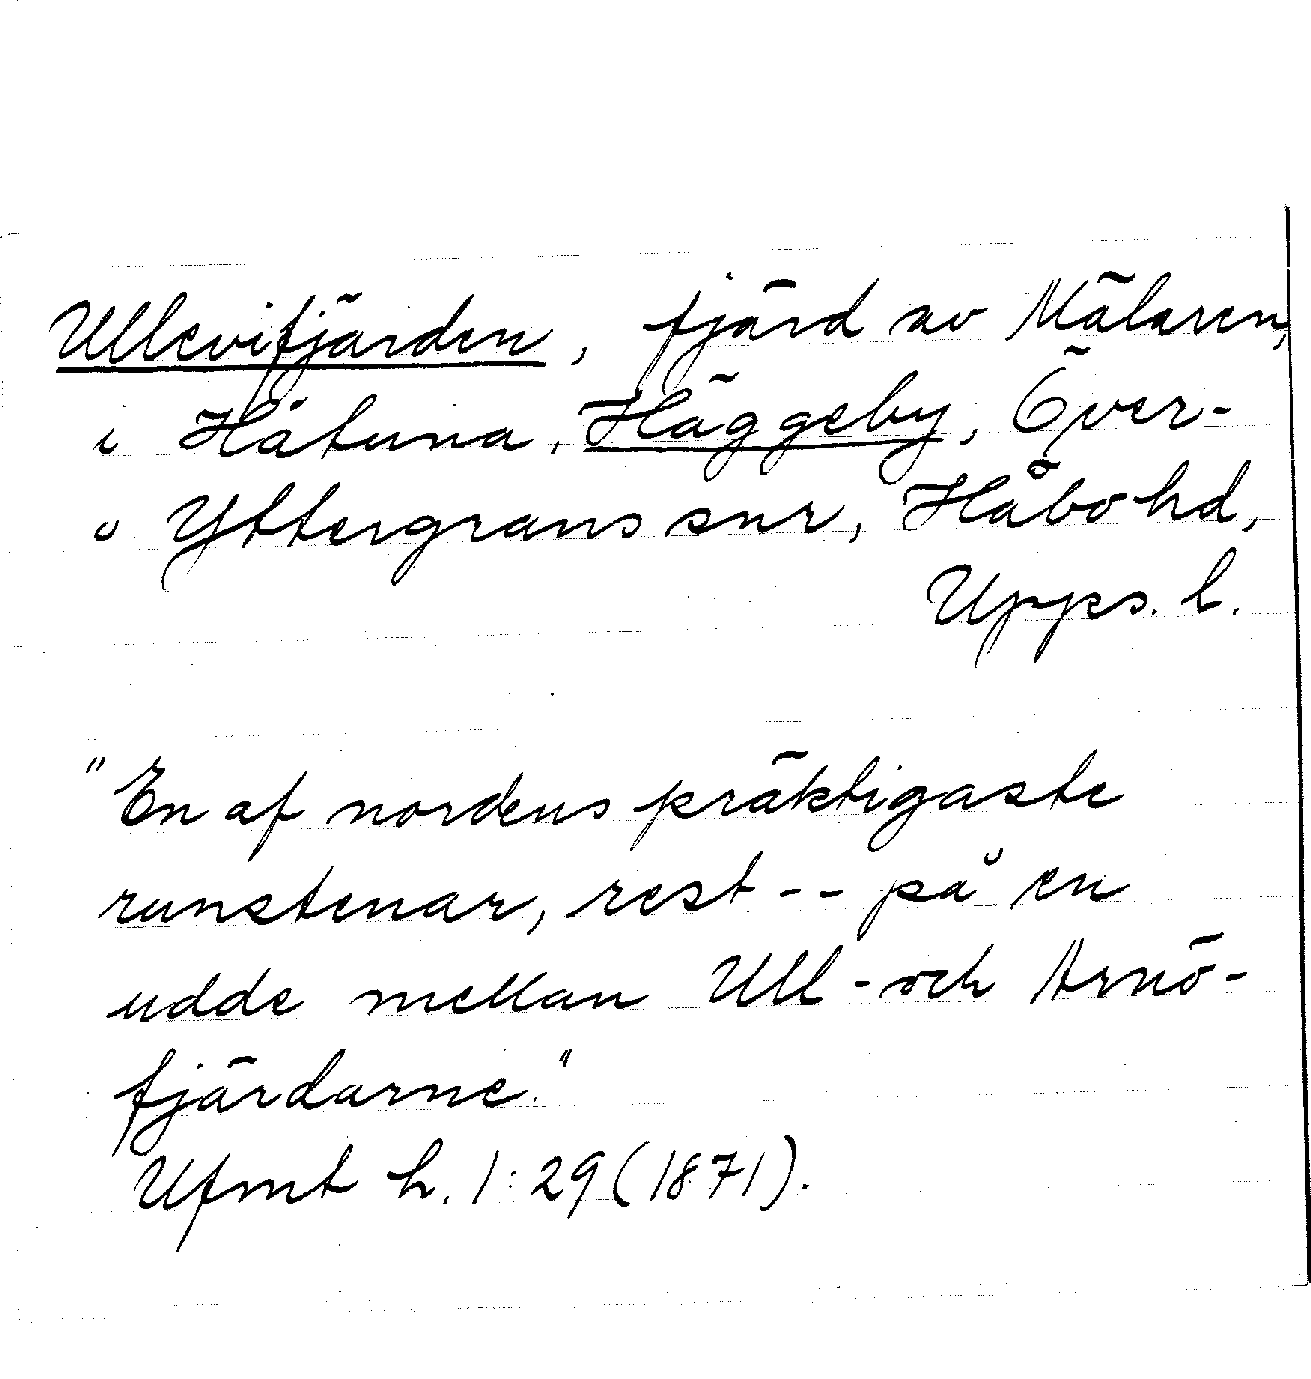 Ullevifjärden, fjärd av Mälaren,
i Håtuna, Häggeby, Över-
o Yttergrans snr, Håbo hd,
Upps. l.
"En af nordens präktigaste
runstenar, rest -- på en
udde mellan Ull- och Arnö-
fjärdarne."
Ufmt h. 1:29 (1871).